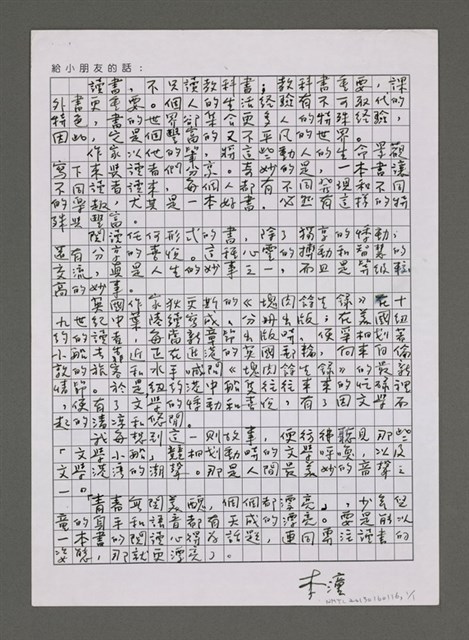 給小朋友的話：
讀書，不只讀教科書；教科書重要，課
外書更重要。個人的生活經驗有不可取代的
特色，書的世界卻集合更多人的特殊經驗，
因此，它是個豐富的又不平凡的世界。
作家以他的筆，將這些動人的生命景觀
寫下來與讀者們分享。奇妙的是，一本書讓
不同讀者讀來，每個人都有不同發現和不同
的樂趣，尤其是一本好書。必然有這樣的特
殊與豐富。
閱讀任何形式的書，除了獨享的悸動；
還有分享的喜悅。這種心靈的搏動和智慧的
交流，真是人生的妙事之一，而且是等級較
高的妙事。
英國作家狄更斯的《塊肉餘生錄》在十
九世紀中葉陸續寫成、分冊出版；在美國紐
約的讀者，每當新章節出版時，便爭相划著
小船去靠近正在進港的英國郵輪，向來自倫
敦的旅客和水手喊問《塊肉餘生錄》的最新
情節。於是，紐約港中船隻往往來來的忙碌裡
，便有了文學的悸動和喜悅，有了因文學而
起的清涼和悠閒。
我每想到這一則故事，便彷彿聽見那些
「文學小船」競相划動時的文學呼喚，以及
文學港灣的潮聲。那是人間最美妙的音聲之
一。
「青春無關美醜，個個都漂亮」，少年兒
童的寫手和讀者都有天成的漂亮。要是能以
一本書的閱讀心得為話題，連同專注讀書的
姿態，那就更漂亮了。
李潼
NMTL20130160116, 1/1